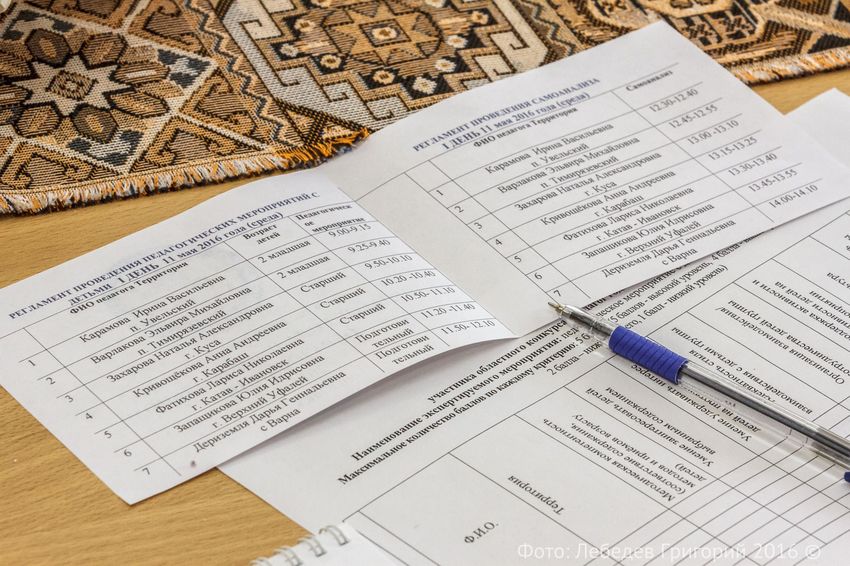 РЕГЛАМЕНТ ПРОВЕДЕНИЯ ПЕДАГОГИЧЕСКИХ МЕРОПРИЯТИЙ С
ДЕТЬМИ 1 ДЕНЬ 11 мая 2016 года (среда)
ФИО педагога Территория
Возраст
детей
Педагогическ
ое
мероприятие
1
Карамова Ирина Васильевна
п. Увельский
2 младшая
9.00-9.15
2
Варлакова Эльвира Михайловна
п. Тимирязевский
2 младшая
9.25-9.40
3
Захарова Наталья Александровна
г. Куса
Старший
9.50-10.10
4
Кривошёкова Анна Андреевна
г. Карабаш
Старший
10.20-10.40
5
Фатихова Лариса Николаевна
г. Катав - Ивановск
Старший
10.50-11.10
6
Запашикова Юлия Идрисовна
г. Верхний Уфалей
Подготови
тельный
11.20-11.40
7
Дериземля Дарья Геннальевна
с Варна
Подготови
тельный
11.50-12.10
РЕГЛАМЕНТ ПРОВЕДЕНИЯ САМОАНАЛИЗА
1 ДЕНЬ 11 мая 2016 года (среда)
ФИО педагога Территория
Самоанализ
1
Карамова Ирина Васильевна
п. Увельский
12.30-12.40
2
Варлакова Эльвира Михайловна
п. Тимирязевский
12.45-12.55
3
Захарова Наталья Александровна
г. Куса
13.00-13.10
4
Кривошёкова Анна Андреевна
г. Карабаш
13.15-13.25
5
Фатихова Лариса Николаевна
г. Катав - Ивановск
13.30-13.40
6
Запашикова Юлия Идрисовна
г. Верхний Уфалей
13.45-13.55
7
Дериземля Дарья Геннальевна
с Варна
14.00-14.10
участника областного конкурса
Наименование экспертируемого мероприятия:
Максимальное количество баллов по каждому критерию: 5
(5 баллов - высокий уровень, 4 балла -
2 балла - 1 балл - низкий уровень)
Ф.И.О.
Территория
Методическая компетентность
(соответствие содержания,
методов и приёмов возрасту
детей)
Умение заинтересовать детей
выбранным содержанием
Умение удерживать интерес
детей на
Организация
взаимодействия/
сотрудничества детей группы
взаимодействия с детьми группы
Фото: Лебедев Григорий 2016 ©